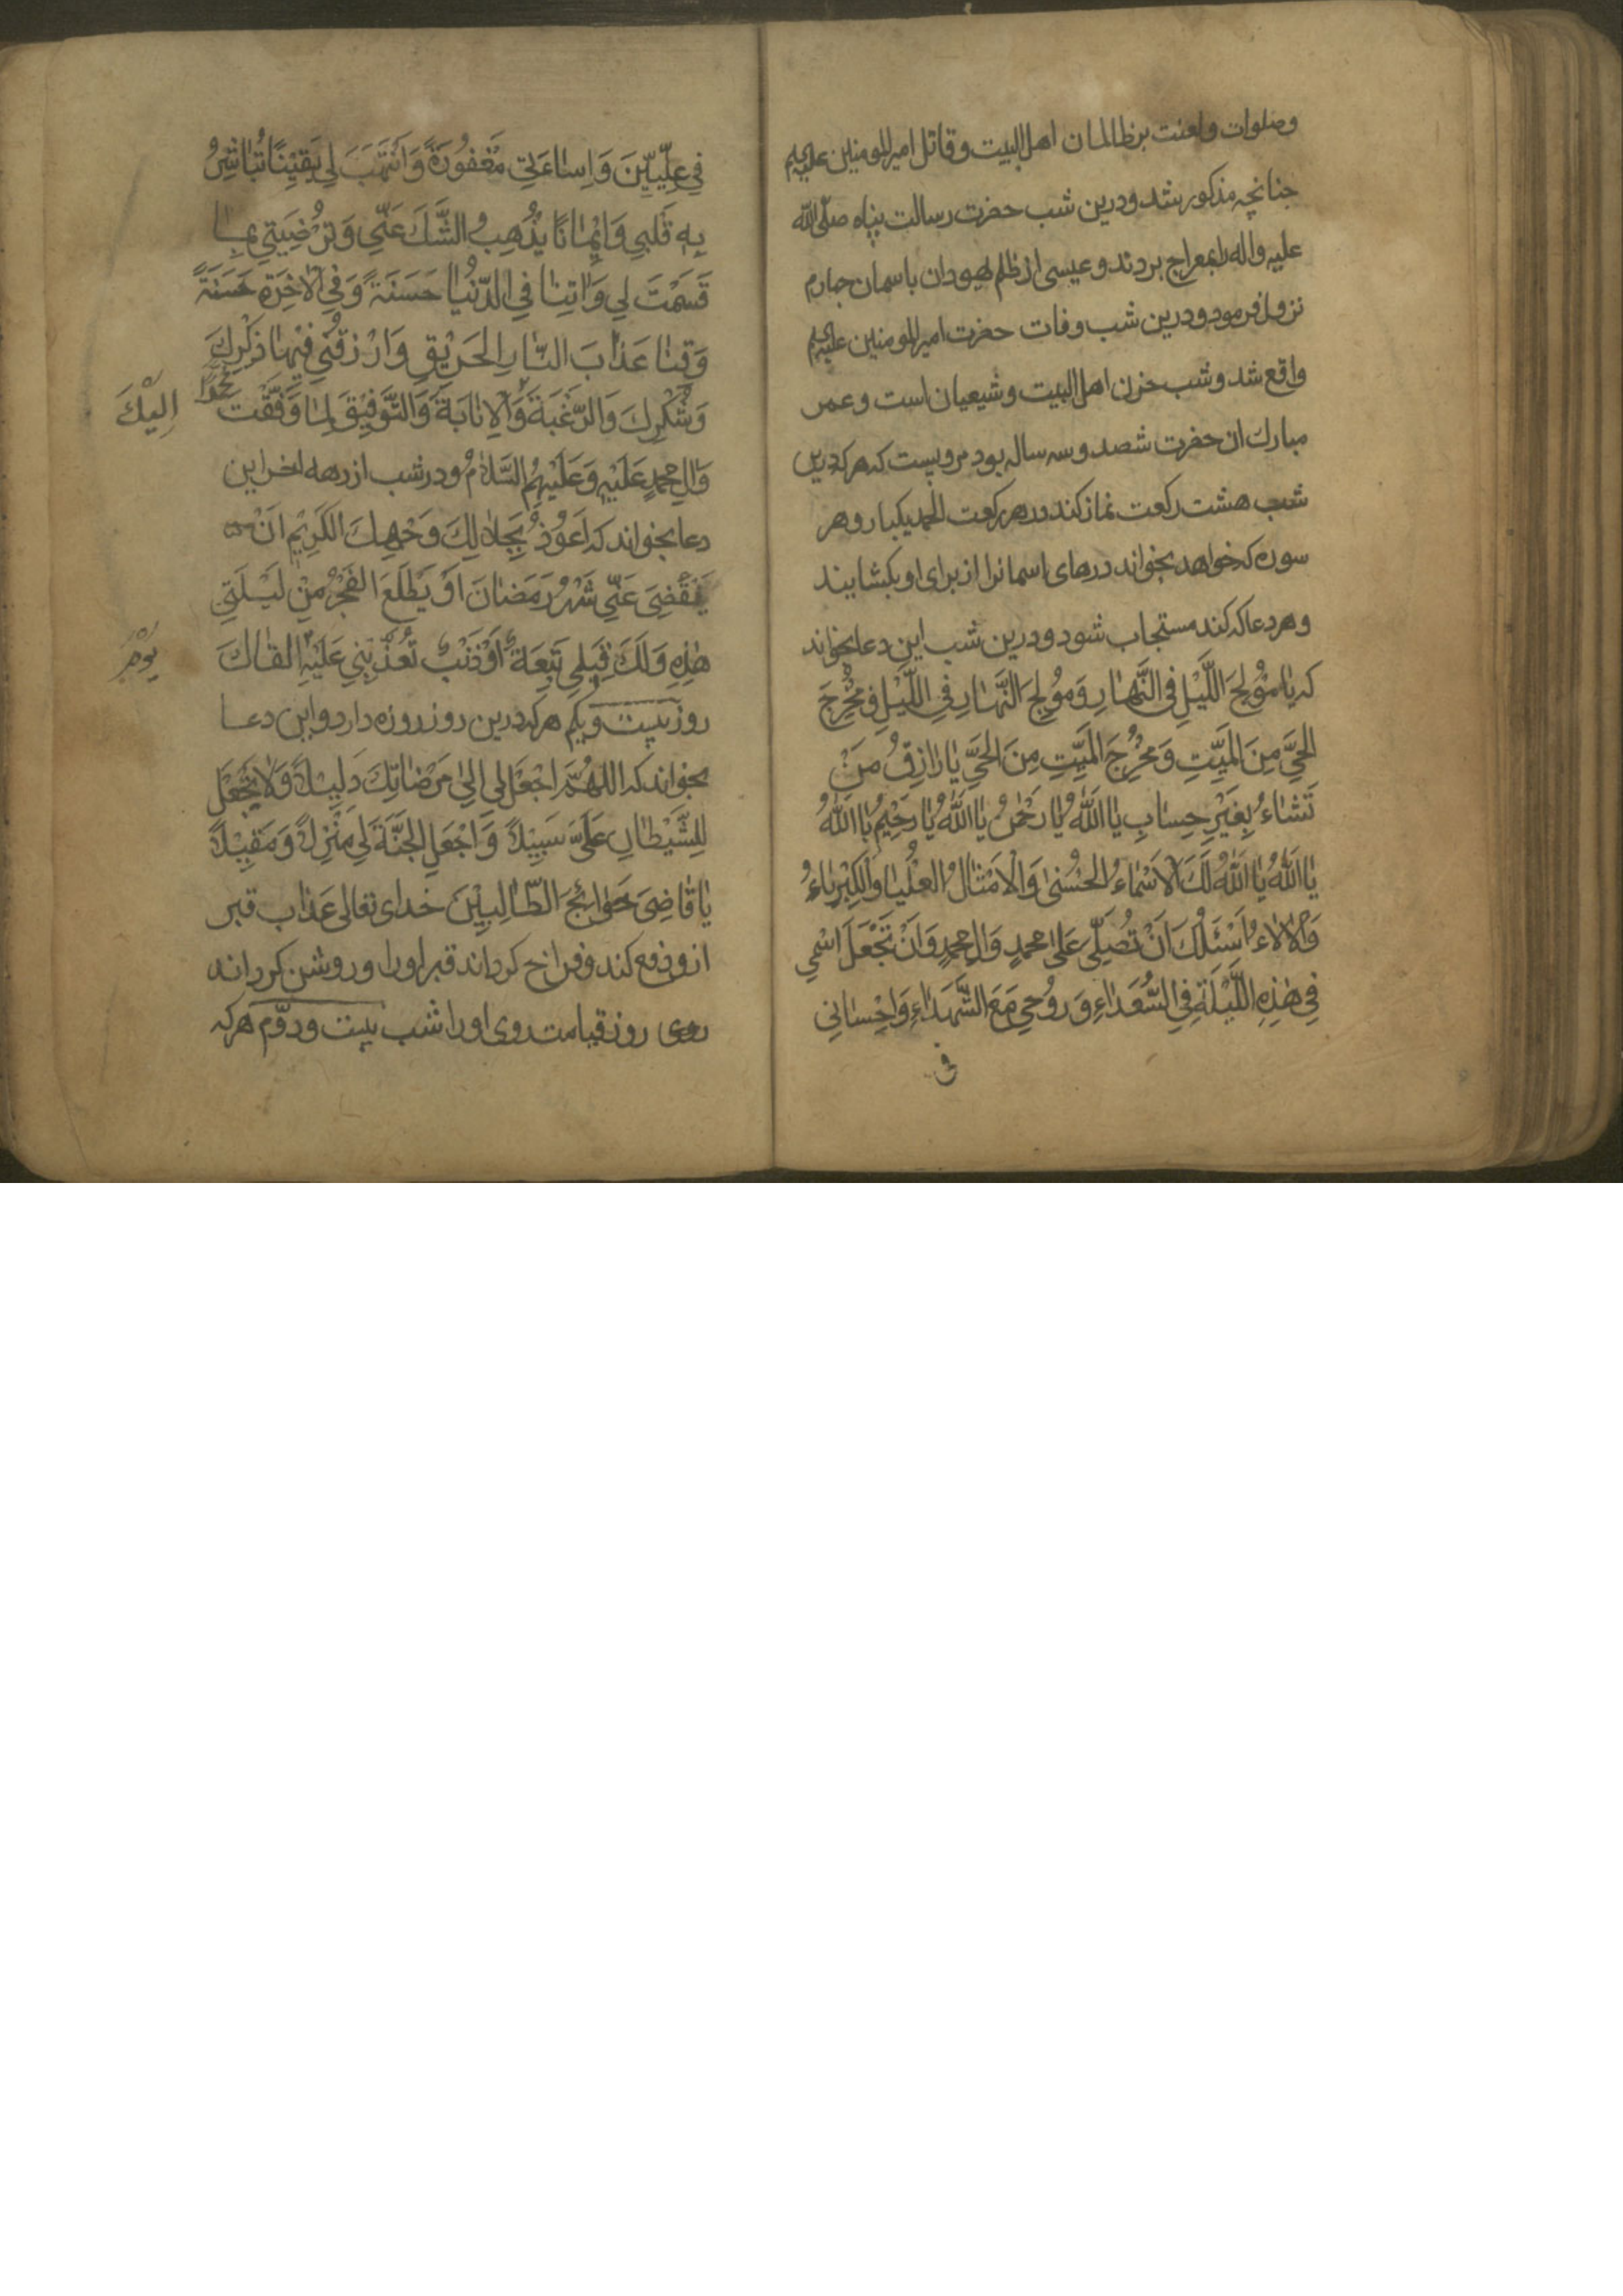 وصلوات ولعنت بر ظالمان اهل البیت و قاتل امیر المومنین علیهم
چنانچه مذکور شد و درین شب حضرت رسالت پناه صلی الله
علیه واله را بمعراج بردند و عیسی از ظلم یهودان باسمان چهارم
نزول فرمود و درین شب وفات حضرت امیر المومنین علیهم
واقع شد و شب حزن اهل البیت و شیعیان است و عمر
مبارک ان حضرت شصد و سه ساله بود مرویست که هر که درین
شب هشت رکعت نماز کند در هر رکعت الحمد یکبار و هر
سوره که خواهد بخواند درهای اسمانرا از برای او بکشایند
و هر دعا که کند مستجاب شود و درین شب این دعا بخواند
که یٰا مُوْلِجَ اللَّیْلِ فِی النَّهٰارِ وَ مُوْلِجَ النَّهٰارِ فِی اللَّیْلِ وَ مُخْرِجَ
الحَیِّ مِنَ المَیِّتِ وَ مُخْرِجَ المَیِّتِ مِنَ الحَیِّ یٰا رٰازِقُ مَنْ
تَشٰاءُ بِغَیْرِ حِسٰابٍ یٰا اَللّٰهُ یٰا رَحْمٰنُ یٰا اَللّٰهُ یٰا رَحِیْمُ یٰا اَللّٰهُ
یٰا اَللّٰهُ یٰا اَللّٰهُ لَکَ الْاَسْمٰاءُ الحُسْنیٰ وَ الْاَمْثٰالُ العُلْیٰا وَ الْکِبْرِیٰاءُ
وَ الْاٰلٰاءُ اَسْئَلُکَ اَنْ تُصَلِّی عَلیٰ محمدٍ وَ اٰلِ محمدٍ وَ اَنْ تَجْعَلَ اسْمِی
فِی هٰذِهِ اللَّیْلَةِ فِی السُّعَدٰاءِ وَ رُوْحِی مَعَ الشُّهَدٰاءِ وَ اِحْسٰانِی
فی
فِی عِلِّیِّیْنَ وَ اِسٰاءَتِی مَغْفُورَةً وَ اَنْ تَهَبَ لِی یَقِیْنًا تُبٰاشِرُ
بِهِ قَلْبِی وَ اِیْمٰانًا یُذْهِبُ الشَّکَّ عَنِّی وَ تُرْضِیَنِی بِمٰا
قَسَمْتَ لِی وَ اٰتِنٰا فِی الدُّنْیٰا حَسَنَةً وَ فِی الْاٰخِرَةِ حَسَنَةً
وَ قِنٰا عَذٰابَ النّٰارِ الحَرِیْقِ وَ ارْزُقْنِی فِیْهٰا ذِکْرَکَ
وَ شُکْرَکَ وَ الرَّغْبَةَ وَ الْاِنٰابَةَ وَ التَّوْفِیْقَ لِمٰا وَفَّقْتَ محمدًا
اِلَیْکَ
وَ اٰلِ محمدٍ عَلَیْهِ وَ عَلَیْهِمُ السَّلٰامُ و در شب از دهه اخر این
دعا بخواند که اَعُوْذُ بِجَلٰالِکَ وَجْهِکَ الکَرِیْمِ اَنْ
یَنْقَضِیَ عَنِّی شَهْرُ رَمَضٰانَ اَوْ یَطْلَعَ الفَجْرُ مِنْ لَیْلَتِی
هٰذِهِ وَ لَکَ قِبَلِی تَبِعَةٌ اَوْ ذَنْبٌ تُعَذِّبُنِی عَلَیْهِ القٰاکَ
یَوْمَ
روز بیست و یکم هر که درین روز روزه دارد و این دعا
بخواند که اللهُمَّ اجْعَلْ لِی اِلیٰ مَرْضٰاتِکَ دَلِیْلًا وَ لٰا تَجْعَلْ
لِلشَّیْطٰانِ عَلَیَّ سَبِیْلًا وَ اجْعَلِ الجَنَّةَ لِی مَنْزِلًا وَ مَقِیْلًا
یٰا قٰاضِیَ حَوٰائِجَ الطّٰالِبِیْنَ خدای تعالی عذاب قبر
ازو دفع کند و فراخ کرداند قبر او را و روشن کرداند
روی روز قیامت روی او را شب بیست و دوّم هر که